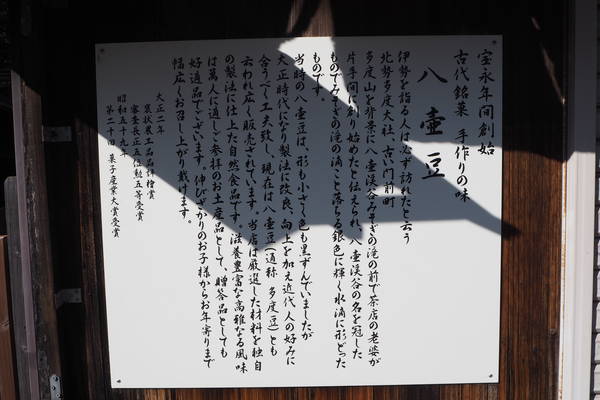 宝永年間創始
古代銘菓　手作りの味
八壺豆
伊勢を詣る人は必ず訪れたと云う
北勢多度大社、古い門前町
多度山を背景に八壺渓谷みそぎの滝の前で茶店の老婆が
片手間に創り始めたと伝えられ、八壺渓谷の名を冠した
ものでみそぎの滝の滴こと落ちる銀色に輝く水滴に形どった
ものです。
当時の八壺豆は、形も小さく色も黒ずんでいましたが
大正時代になり製法に改良、向上を加え近代人の好みに
合うべく工夫致し、現在は八壺豆(通称 多度豆)とも
云われ広く販売されています。当店は厳選した材料を独自
の製法に仕上た自然食品です。滋養豊富な高雅なる風味
は万人に適し、参拝のお土産品として、贈答品としても
好適品でございます。伸びざかりのお子様からお年寄りまで
幅広くお召し上がり戴けます。
大正二年
衷状展工芸品評会賞
審査長正五位勲五等受賞
昭和五十九年
第二十回 菓子産業大賞受賞